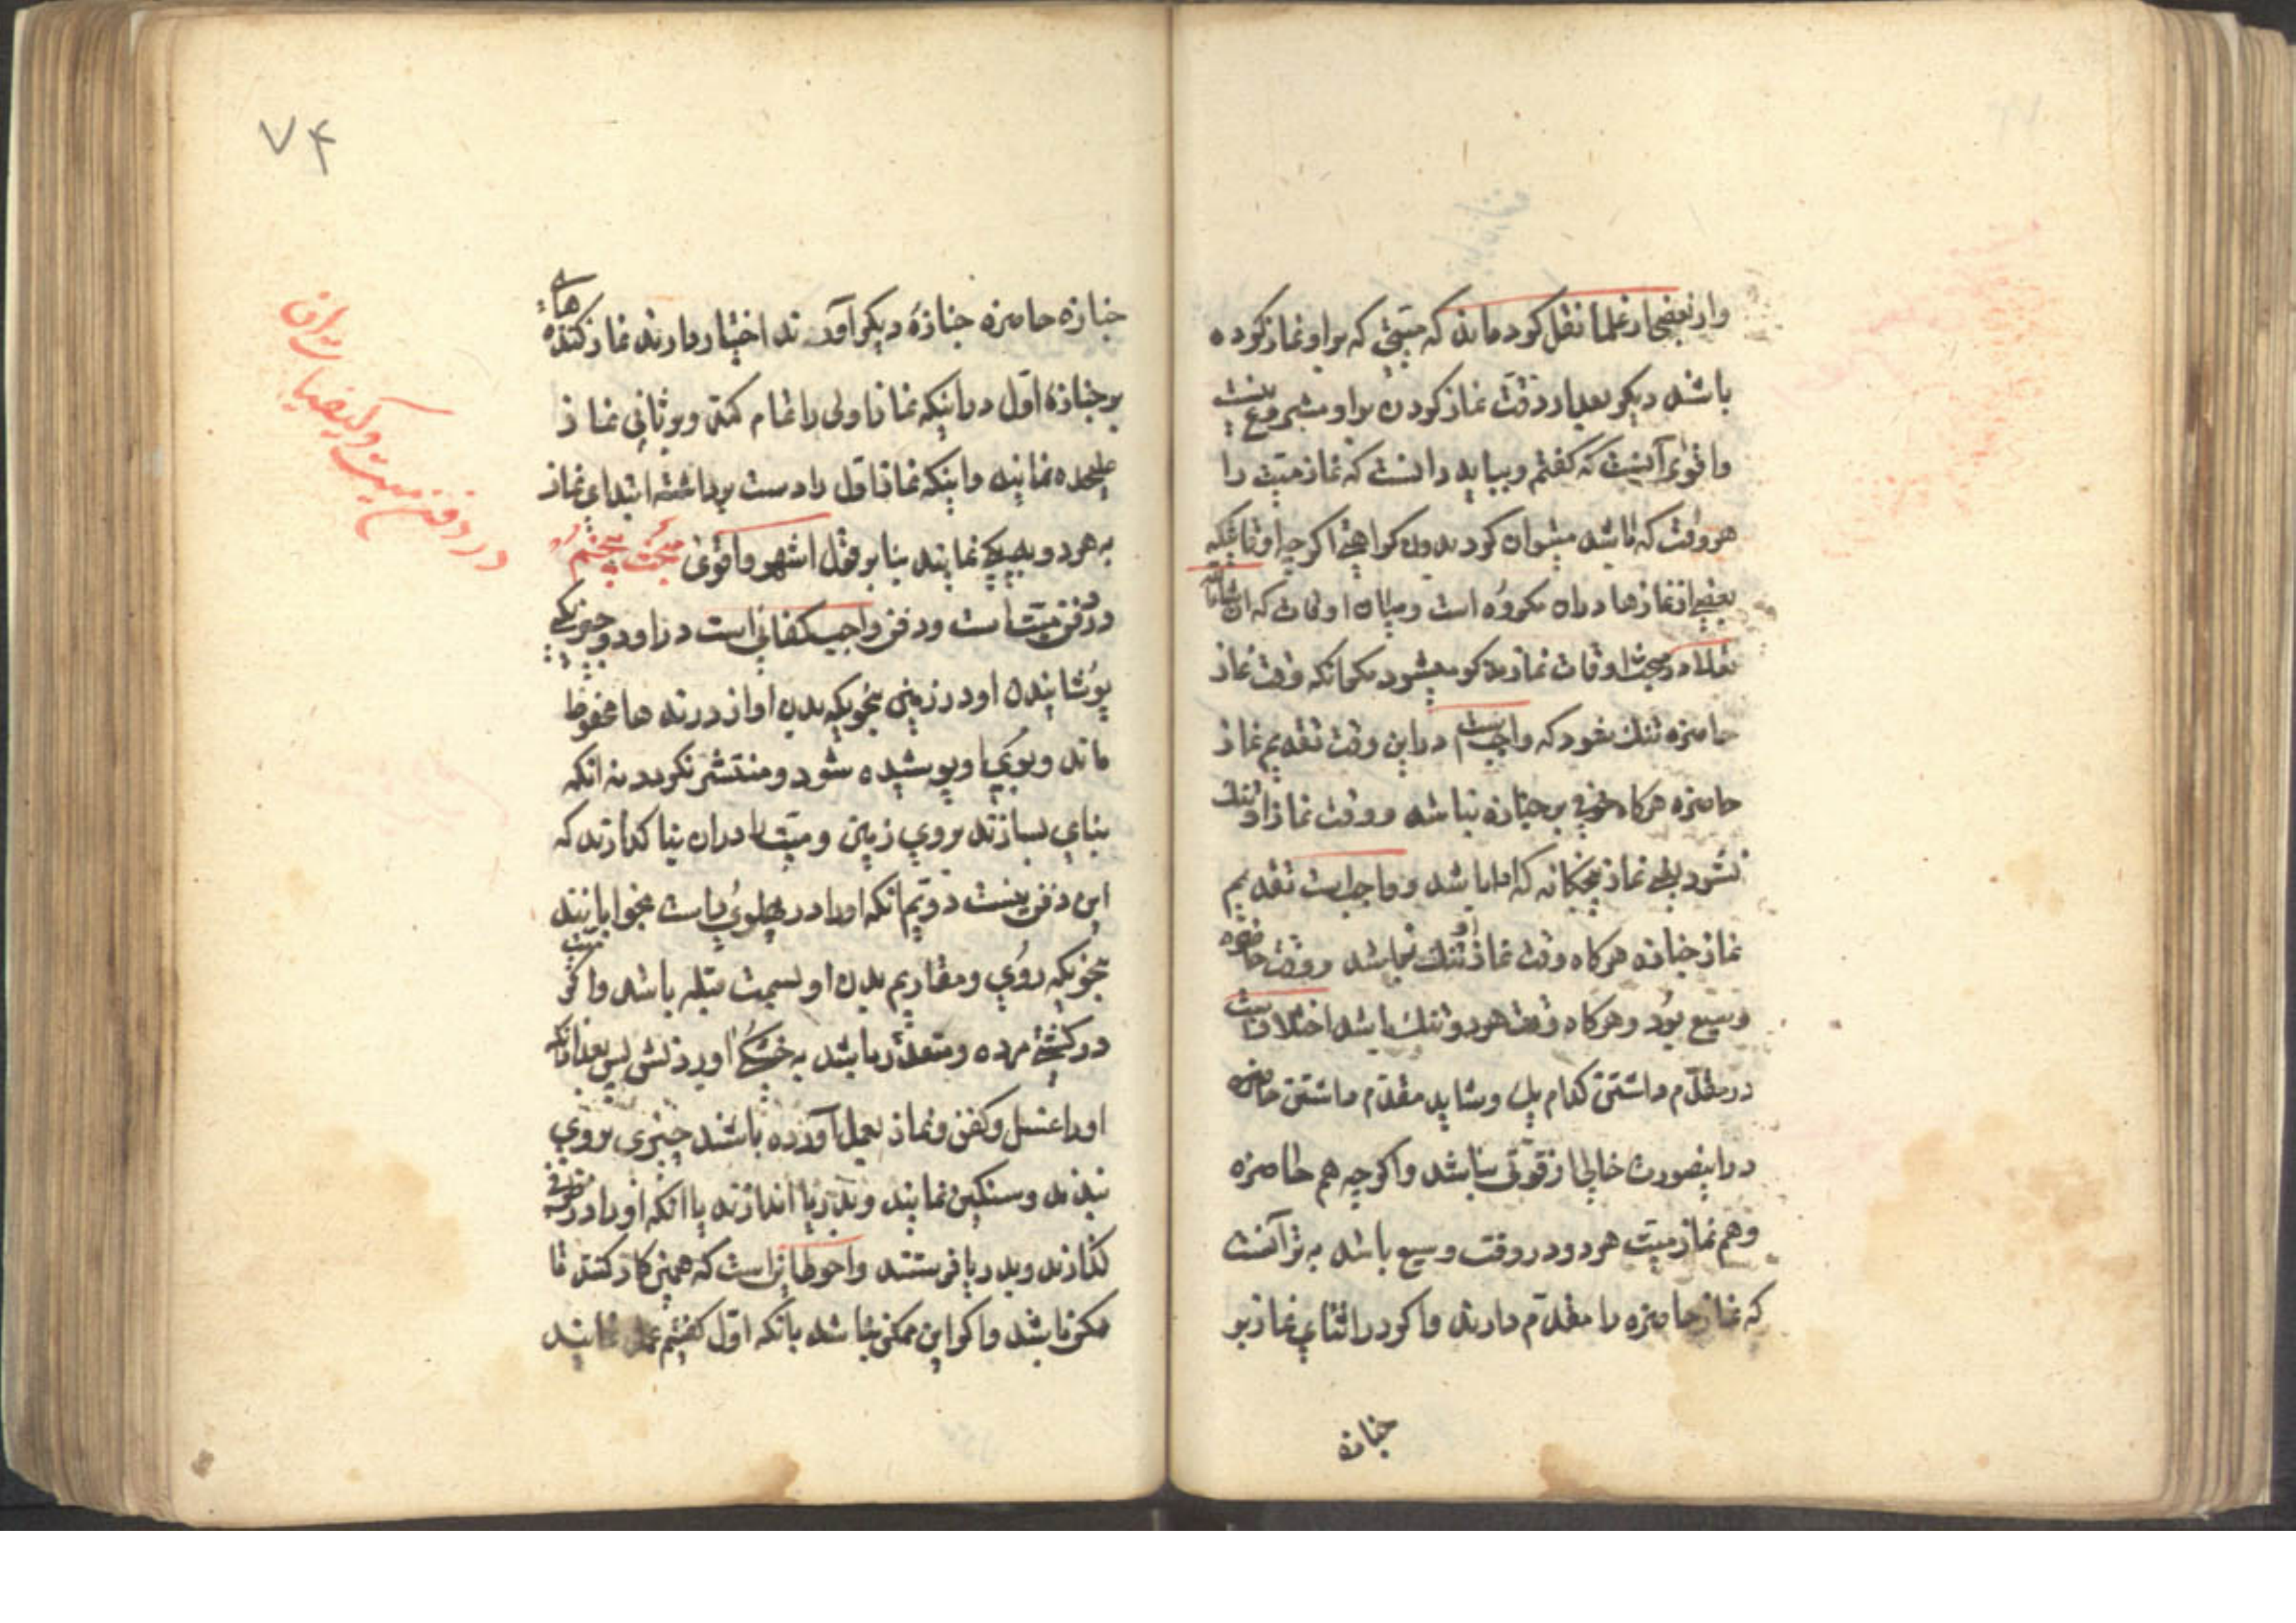 و از بعضی از علما نقل کرده‌اند که میّتی که بر او نماز کرده
باشند دیگر بعد از دفن نماز کردن بر او مشروع نیست
و اقوی آنست که گفتم و بباید دانست که نماز میّت را
هر وقت که باشد میتوان کرد بدون کراهتی اگر چه اوقاتیکه
بعضی از نمازها در آن مکروه است و میان اوقات که انشاءالله
در مبحث اوقات نماز مذکور میشود مگر آنکه وقت نماز
حاضره تنک شود که واجبست در این وقت تقدیم نماز
حاضره هرکاه خوفی بر جنازه نباشد و وقت نماز او تنک
نشود یعنی نماز پنجکانه که ادا باشد و واجبست تقدیم
نماز جنازه هرکاه وقت نماز او تنک باشد و وقت حاضره
وسیع بود و هرکاه وقت هر دو تنک باشد اختلافست
در مقدّم داشتن کدام یک و شاید مقدّم داشتن حاضره
در اینصورت خالی از قوّتی نباشد و اکر چه هم حاضره
و هم نماز میّت هر دو در وقت وسیع باشد بهتر آنست
که نماز حاضره را مقدّم دارند و اکر در اثنای نماز بر
جنازه
۷۴
جنازه حاضره جنازهٔ دیکر آوردند اختیار دارند نماز کننده‌های
بر جنازهٔ اوّل در اینکه نماز اولی را تمام کنند و بر ثانی نماز
علیحده نمایند و اینکه نماز اول را دست برداشته ابتدای نماز
به هر دو بیکی نمایند بنا بر قول اشهر و اقوی مبحث پنجم
در دفن میّت است و دفن واجب کفائی است در او دو چیز یکی
پوشانیدن او در زمین بنحویکه بدن او از درنده‌ها محفوظ
ماند و بوی او پوشیده شود و منتشر نکردد نه آنکه
بنای بسازند بر روی زمین و میّت را در آن بنا کذارند که
این دفن نیست دویّم آنکه او را در پهلوی راست بخوابانند
بنحویکه روی و مقادیم بدن او بسمت قبله باشد و اکر میّت
در کشتی مرده و متعذّر باشد به خشکی آوردنش پس بعد از آنکه
او را غسل و کفن و نماز بعمل آورده باشند چیزی بر وی
ببندند و سنکین نمایند و بدریا اندازند یا آنکه او را در ظرفی
کذارند و بدریا فرستند و احوط این است که همین کار کنند تا
ممکن باشد و اکر این ممکن نباشد بآنکه اوّل کفتیم عمل نمایند
در دفن میت و کیفیات آن